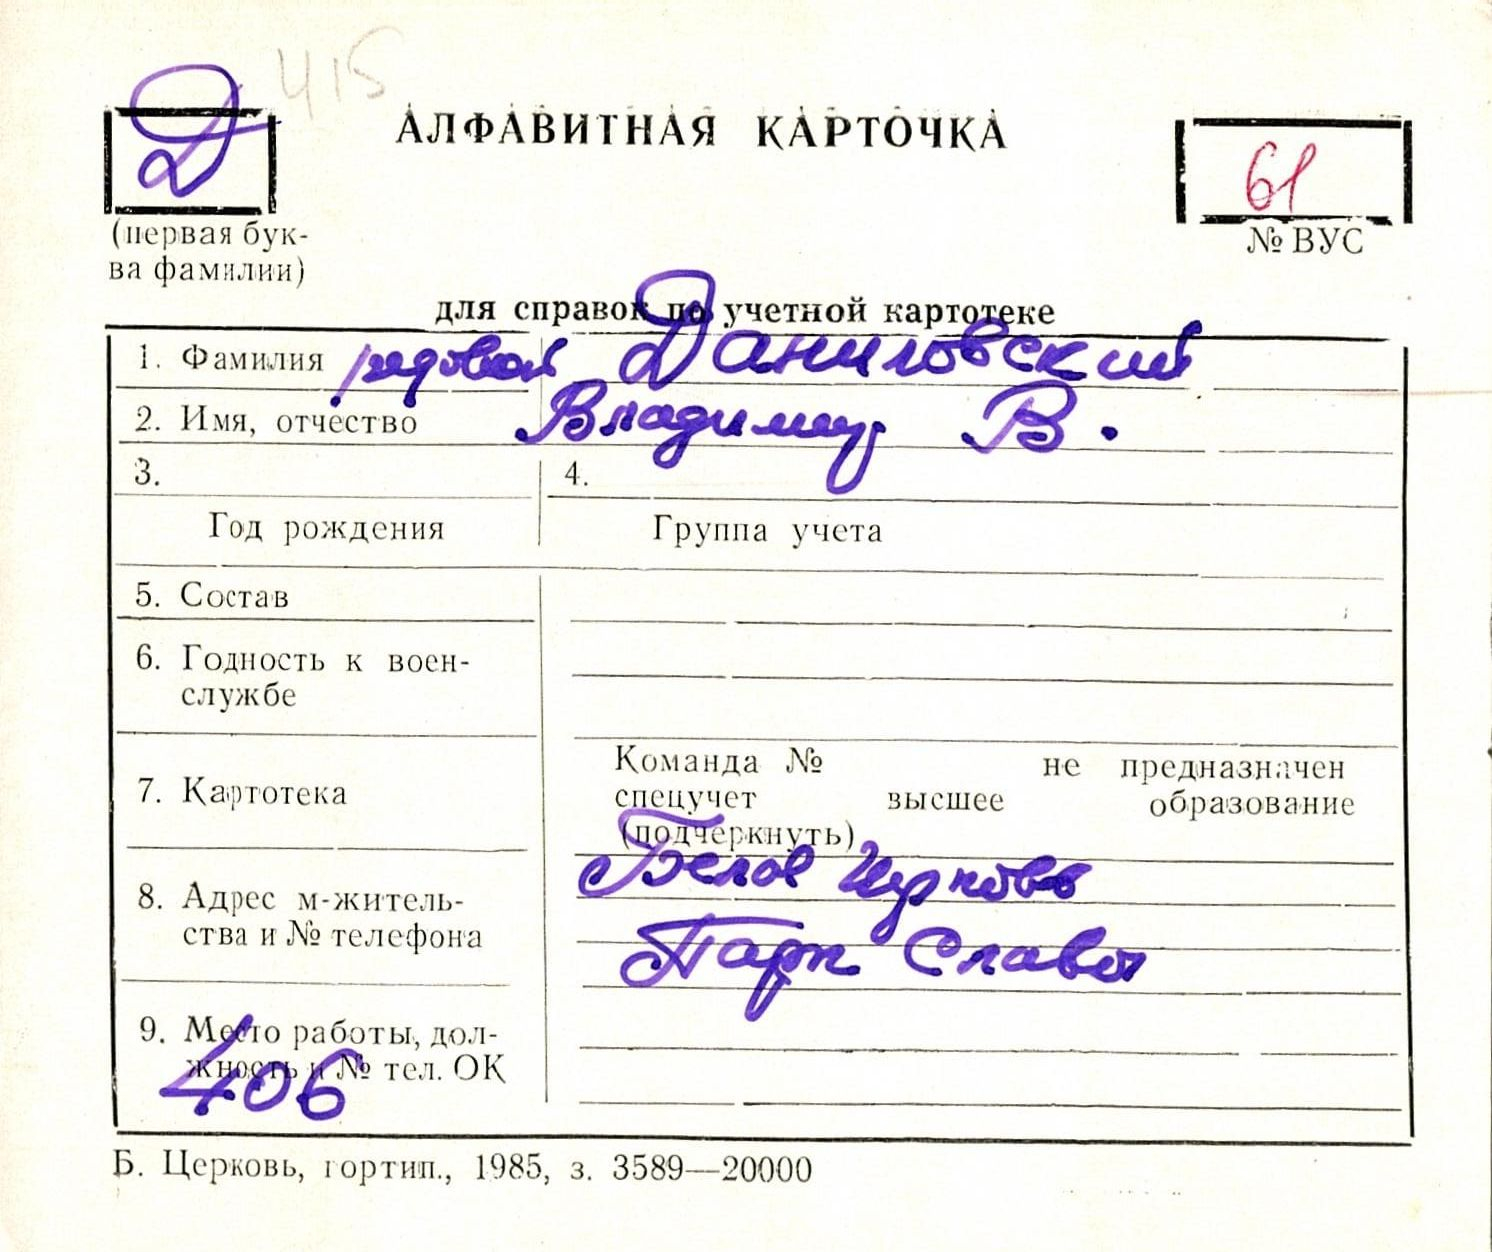 415
Д
АЛФАВИТНАЯ КАРТОЧКА
61
(первая бук-
ва фамилии)
№ ВУС
для справок по учетной картотеке
1. Фамилия рядовой Даниловский
2. Имя, отчество Владимир В.
3. 4.
Год рождения Группа учета
5. Состав
6. Годность к воен-
службе
7. Картотека
Команда № не предназначен
спецучет высшее образование
(подчеркнуть)
8. Адрес м-житель-
ства и № телефона
Белая Церковь
Парк Славы
9. Место работы, дол-
жность и № тел. ОК
406
Б. Церковь, гортип., 1985, з. 3589—20000